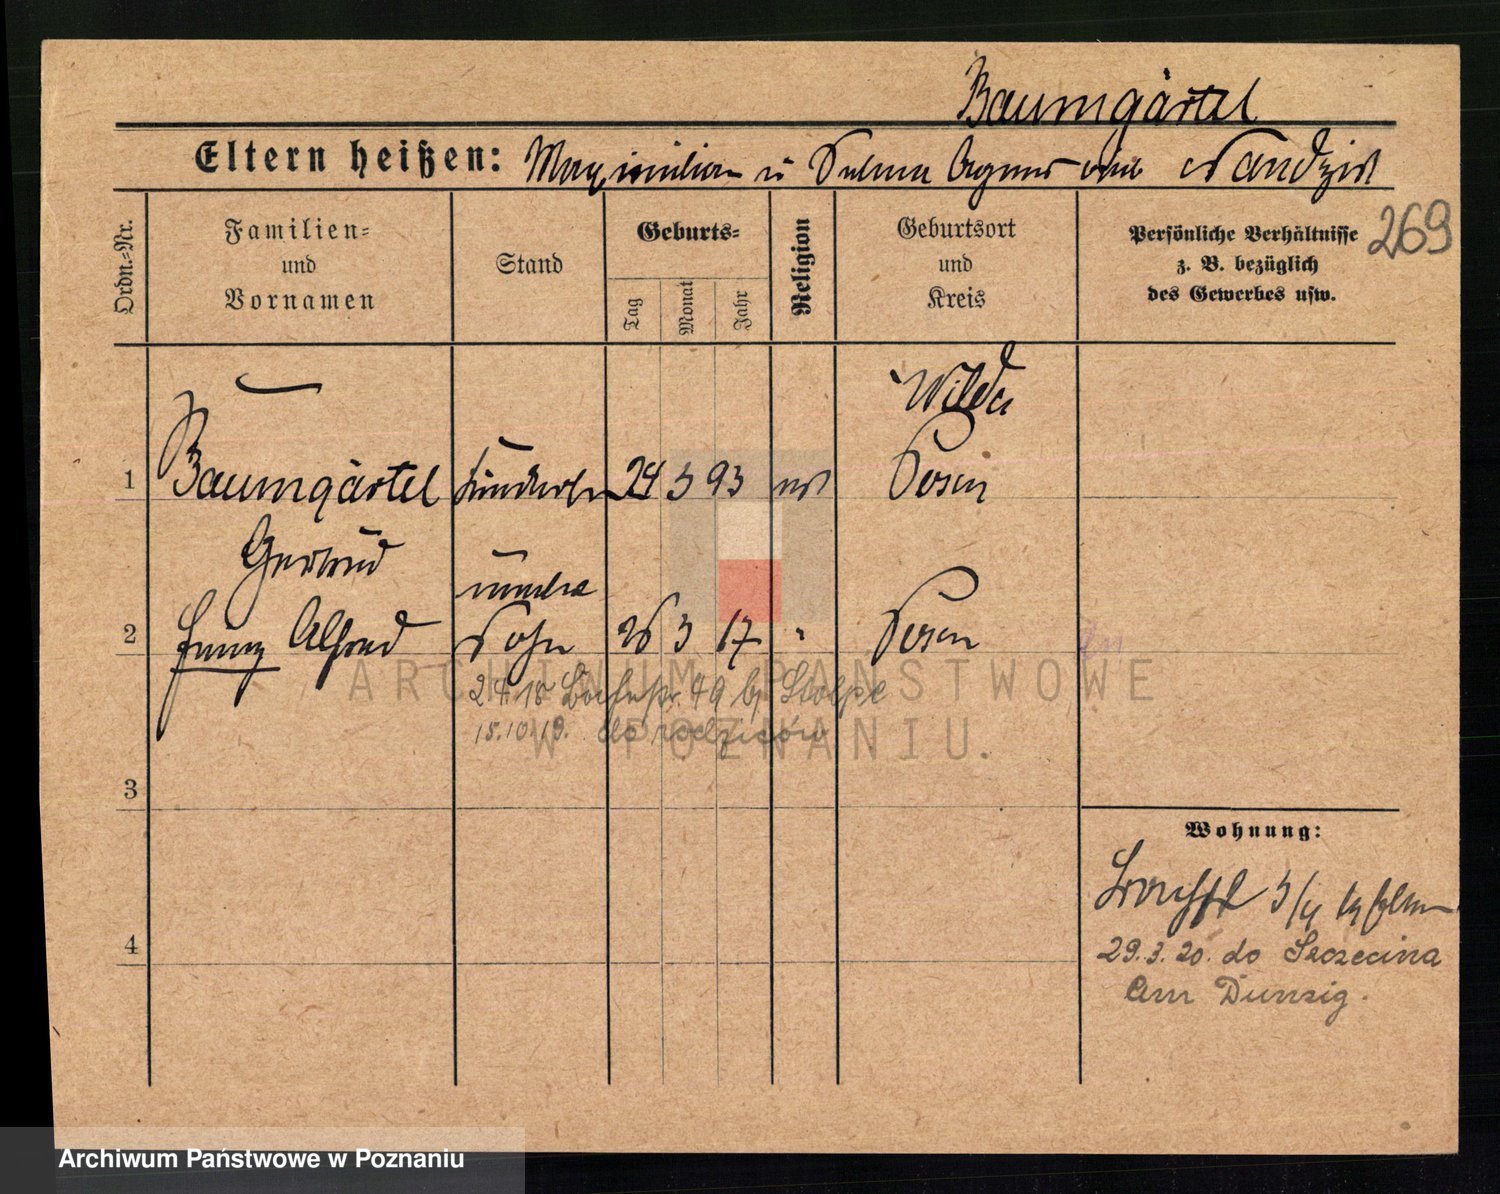 Baumgärtel
Eltern heißen: Maximilian u Selma geb
269
Ordn.=Nr.
Familien=
und
Vornamen
Stand
Geburts=
Tag
Monat
Jahr
Religion
Geburtsort
und
Kreis
Persönliche Verhältnisse
z. B. bezüglich
des Gewerbes usw.
Wilda
1 Baumgärtel 24 3 93 Posen
Gertrud
2 Franz Alfred Sohn 26 3 17 " Posen
49 b/ Stolpe
15.10.19. do rodziców
3
Wohnung:
29.3.20. do Szczecina
Am Dunzig.
4
ARCHIWUM PAŃSTWOWE
W POZNANIU.
Archiwum Państwowe w Poznaniu